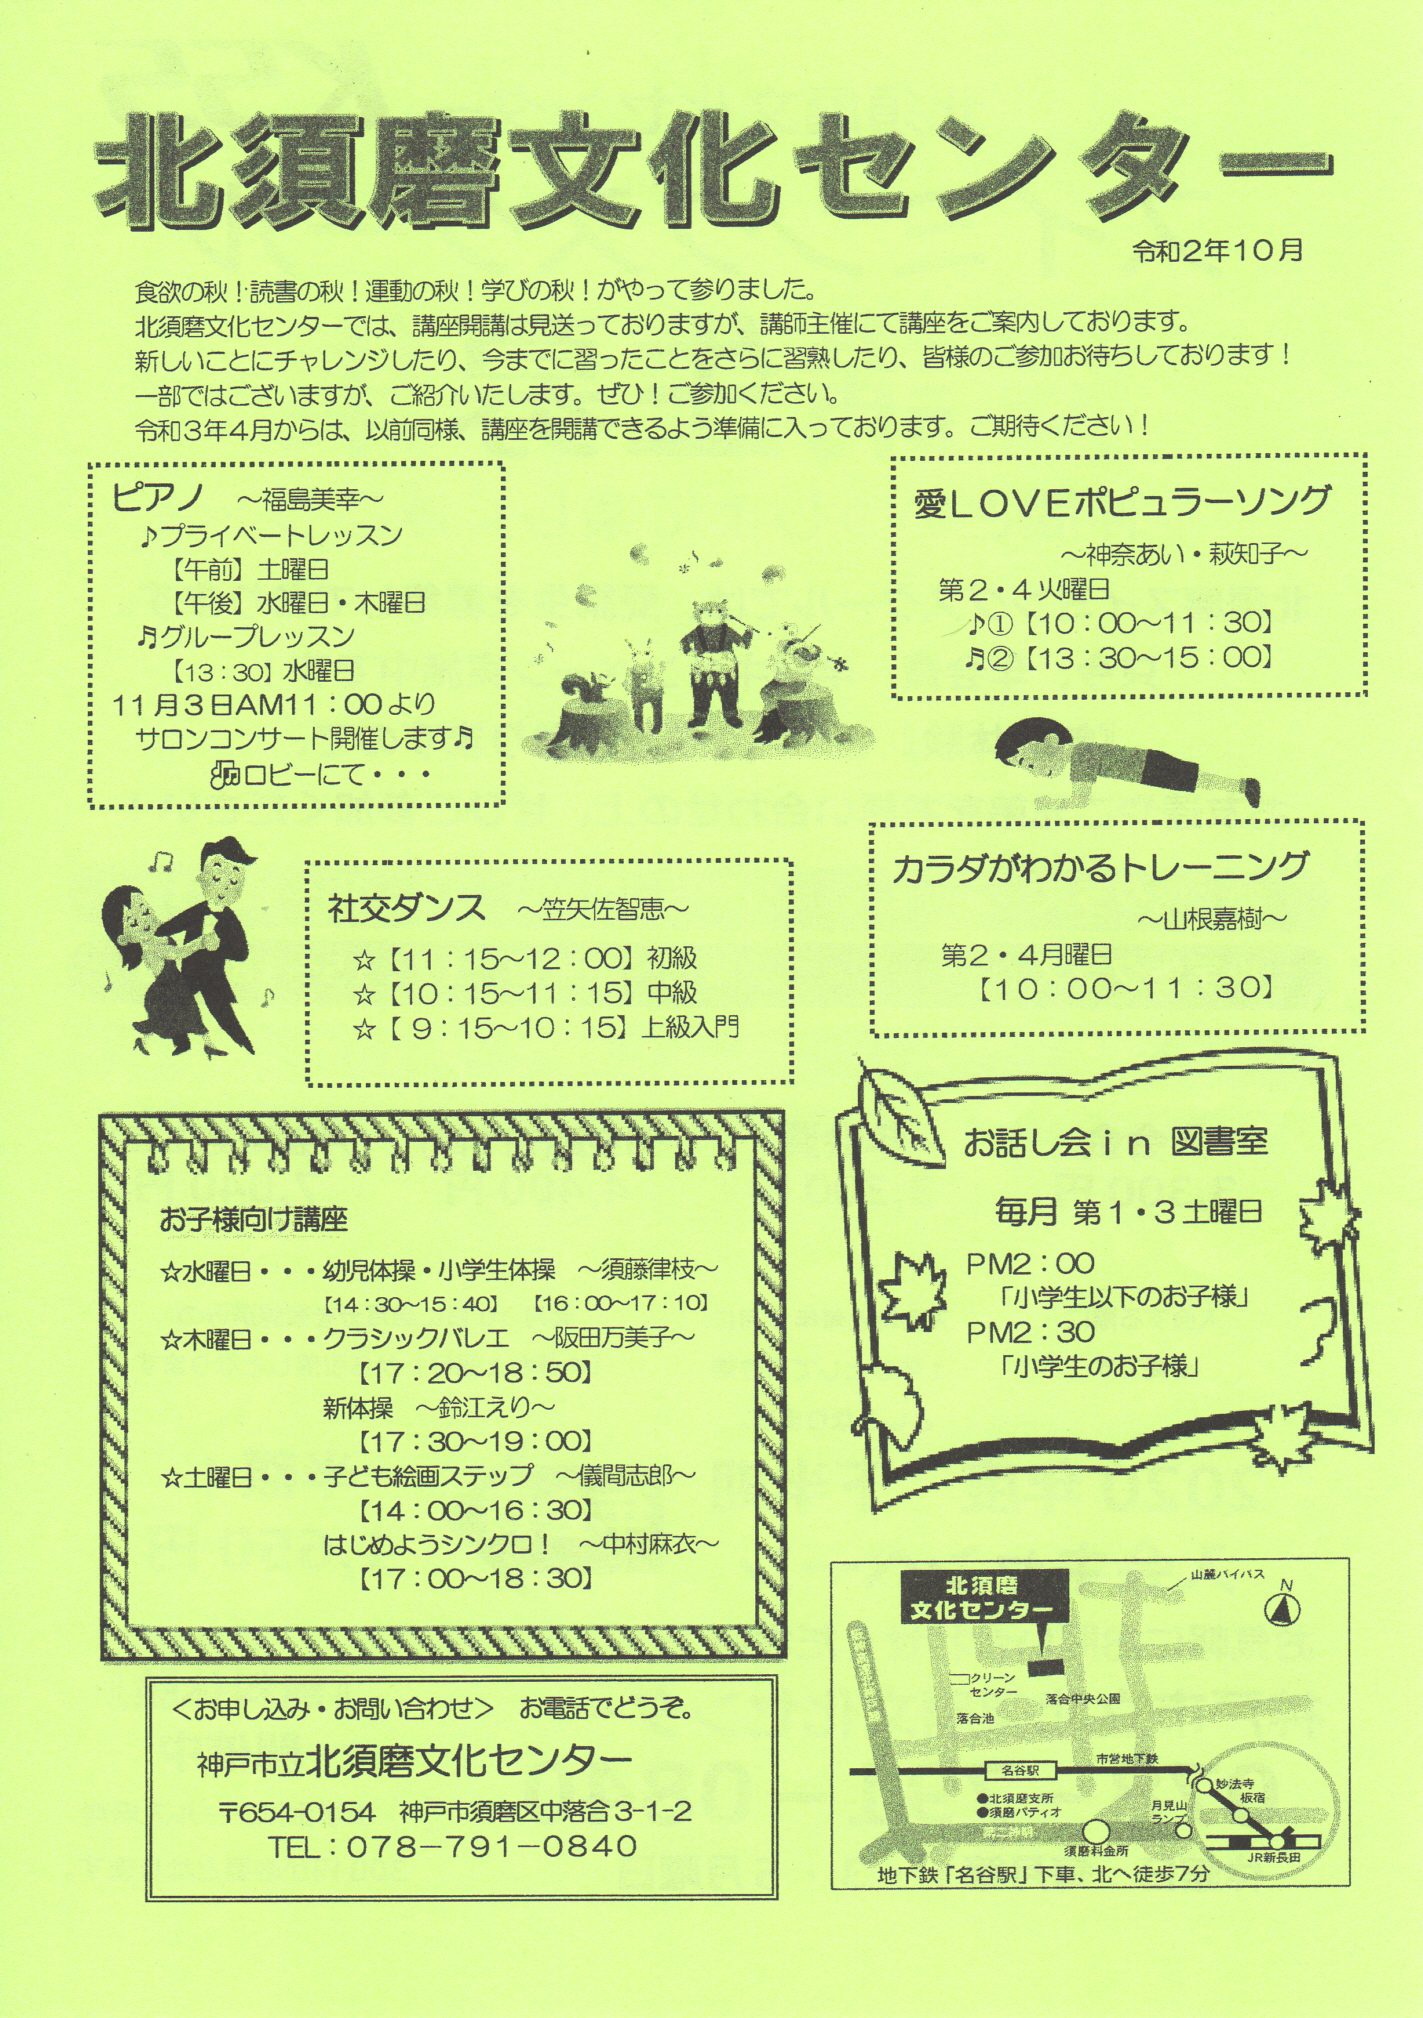 北須磨文化センター
令和2年10月
食欲の秋！読書の秋！運動の秋！学びの秋！がやって参りました。
北須磨文化センターでは、講座開講は見送っておりますが、講師主催にて講座をご案内しております。
新しいことにチャレンジしたり、今までに習ったことをさらに習熟したり、皆様のご参加お待ちしております！
一部ではございますが、ご紹介いたします。ぜひ！ご参加ください。
令和3年4月からは、以前同様、講座を開講できるよう準備に入っております。ご期待ください！
ピアノ　～福島美幸～
♪プライベートレッスン
【午前】土曜日
【午後】水曜日・木曜日
♬グループレッスン
【13：30】水曜日
11月3日AM11：00より
サロンコンサート開催します♬
ロビーにて・・・
愛LOVEポピュラーソング
～神奈あい・萩知子～
第2・4火曜日
♪①【10：00～11：30】
♬②【13：30～15：00】
社交ダンス　～笠矢佐智恵～
☆【11：15～12：00】初級
☆【10：15～11：15】中級
☆【 9：15～10：15】上級入門
カラダがわかるトレーニング
～山根嘉樹～
第2・4月曜日
【10：00～11：30】
お子様向け講座
☆水曜日・・・幼児体操・小学生体操　～須藤律枝～
【14：30～15：40】　【16：00～17：10】
☆木曜日・・・クラシックバレエ　～阪田万美子～
【17：20～18：50】
新体操　～鈴江えり～
【17：30～19：00】
☆土曜日・・・子ども絵画ステップ　～儀間志郎～
【14：00～16：30】
はじめようシンクロ！　～中村麻衣～
【17：00～18：30】
お話し会ｉｎ 図書室
毎月 第1・3土曜日
PM2：00
「小学生以下のお子様」
PM2：30
「小学生のお子様」
＜お申し込み・お問い合わせ＞　お電話でどうぞ。
神戸市立北須磨文化センター
〒654-0154　神戸市須磨区中落合3-1-2
TEL：078－791－0840
北須磨
文化センター
山麓バイパス
N
クリーン
センター
落合中央公園
落合池
市営地下鉄
名谷駅
妙法寺
板宿
●北須磨支所
●須磨パティオ
月見山
ランプ
須磨料金所
JR新長田
地下鉄「名谷駅」下車、北へ徒歩7分